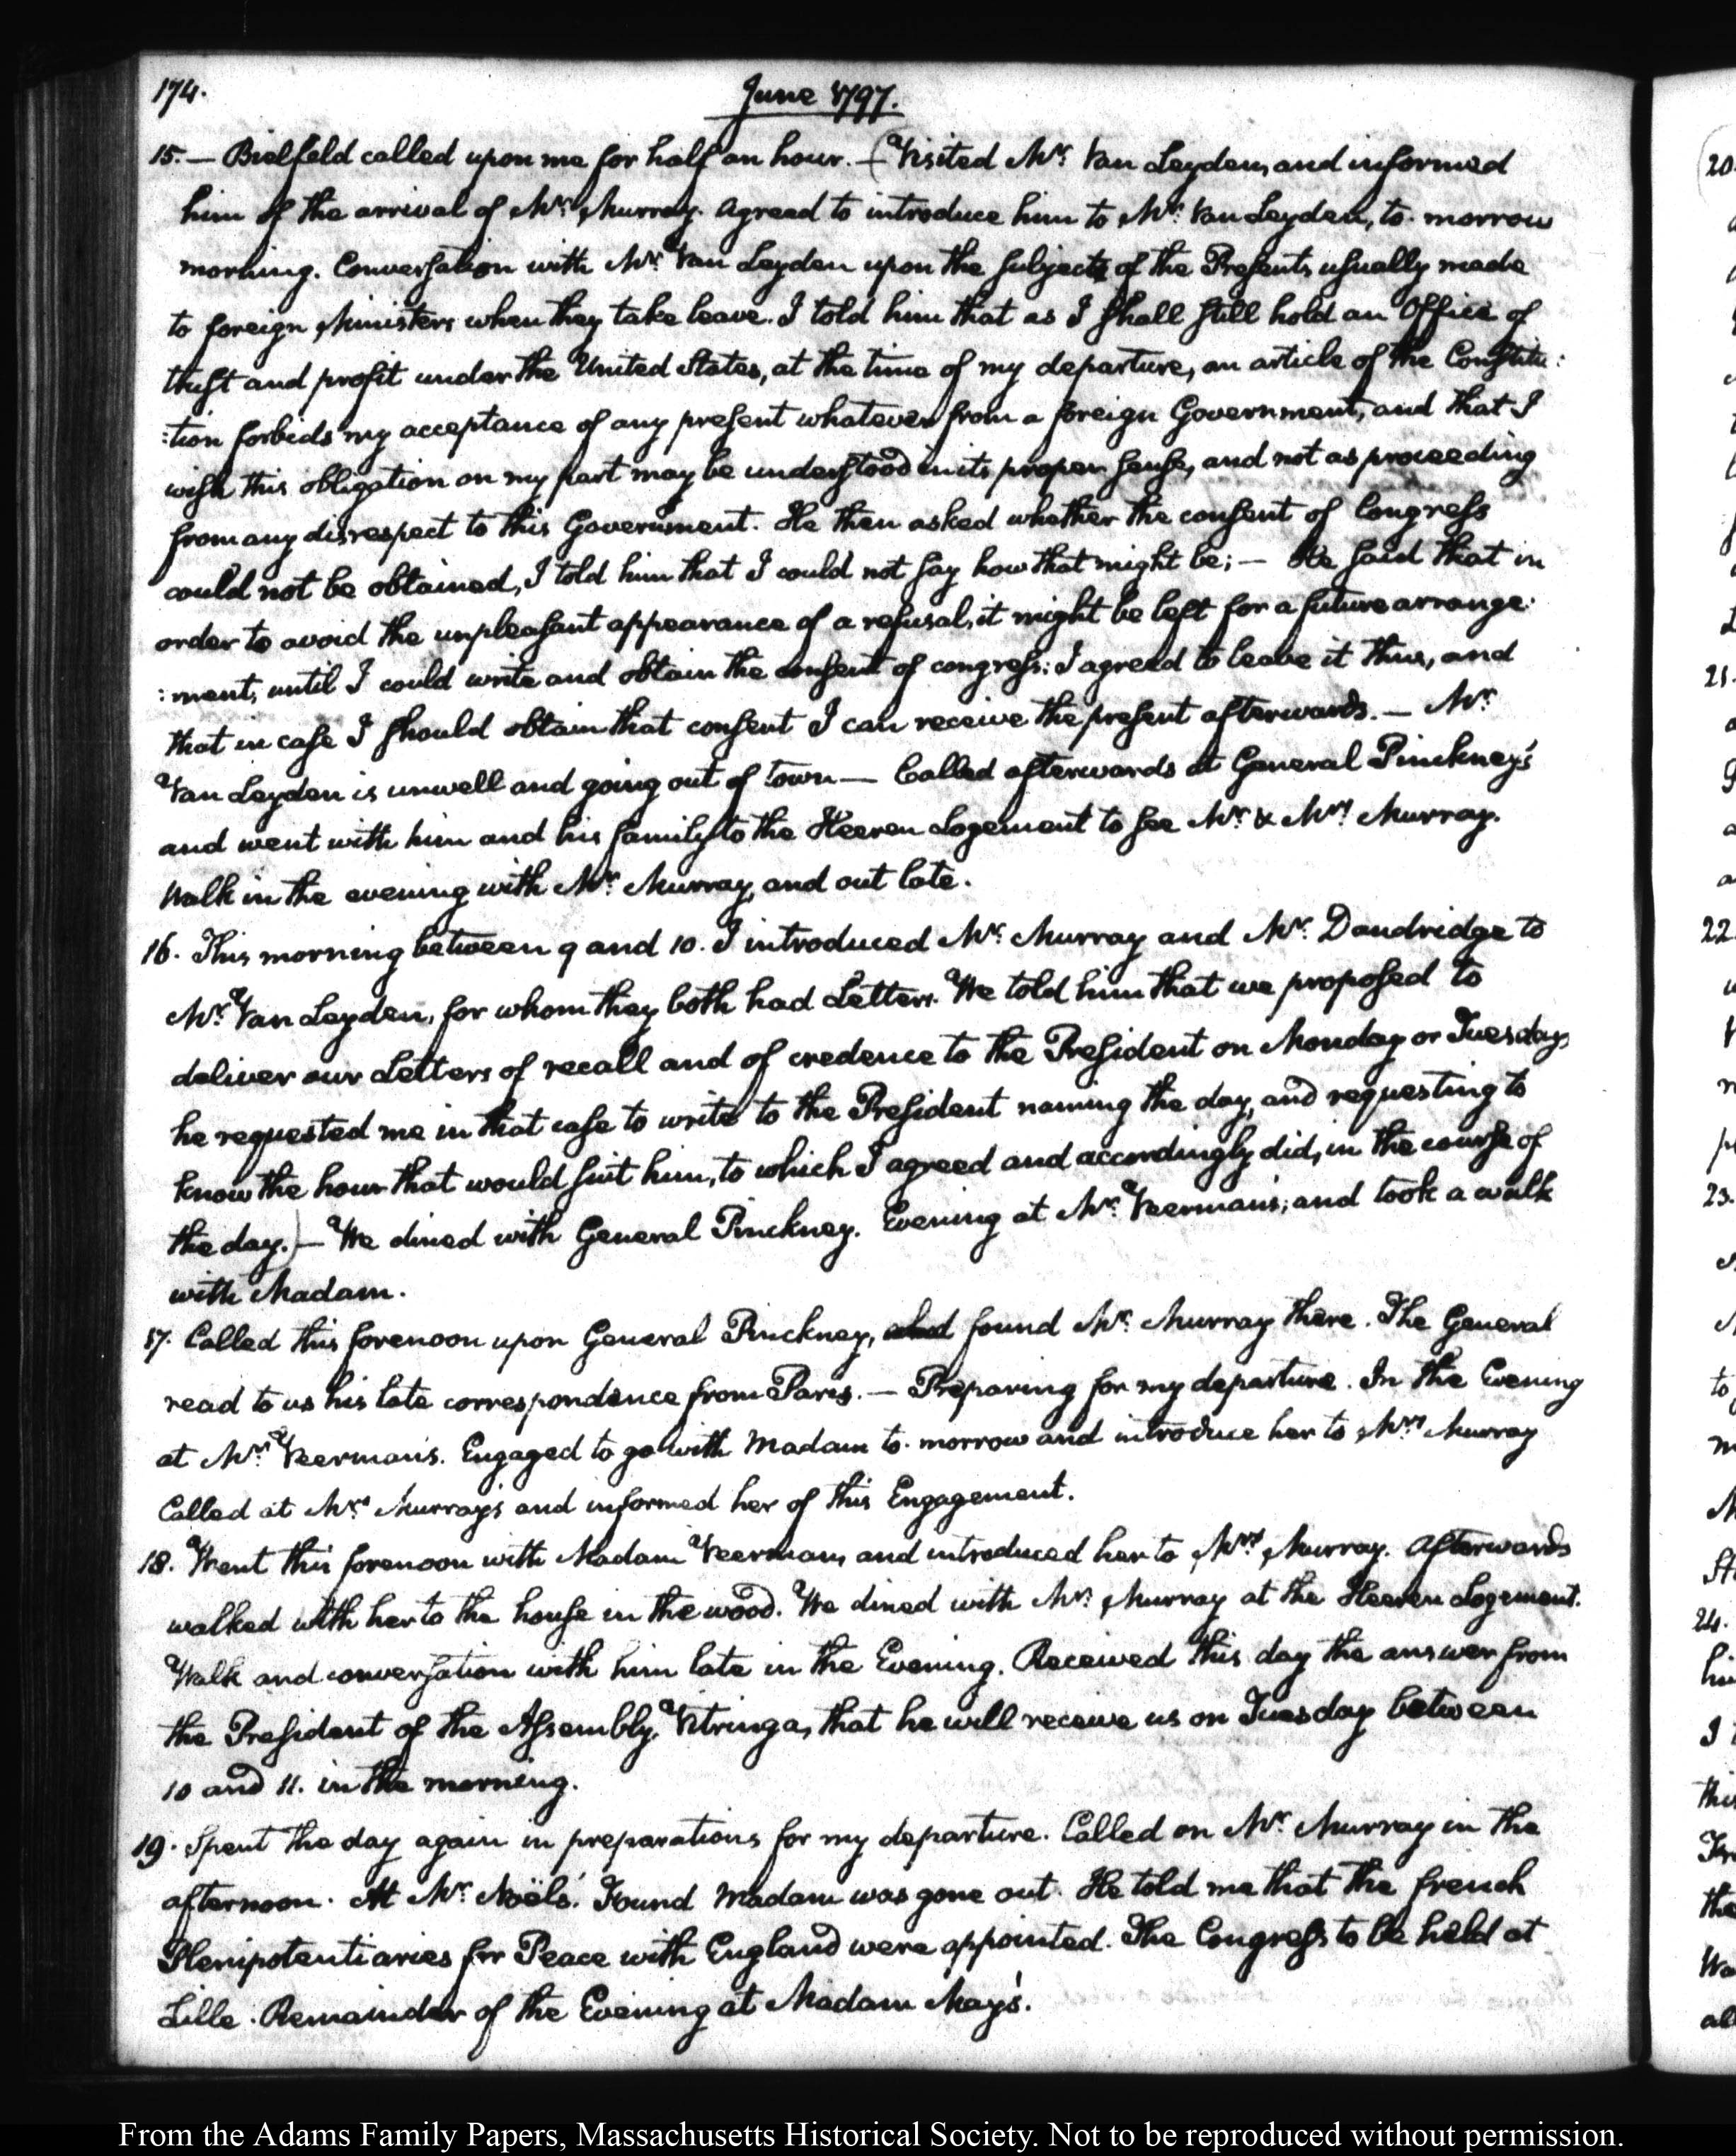 174.
June 1797.
15.— Bielfeld called upon me for half an hour. — (Visited Mr: Van Leyden, and informed
him of the arrival of Mr: Murray. Agreed to introduce him to Mr: Van Leyden, to-morrow
morning. Conversation with Mr: Van Leyden upon the subject of the Presents usually made
to foreign Ministers when they take leave. I told him that as I shall still hold an Office of
trust and profit under the United States, at the time of my departure, an article of the Constitu:
:tion forbids my acceptance of any present whatever from a foreign Government, and that I
wish this obligation on my part may be understood in its proper sense, and not as proceeding
from any disrespect to this Government. He then asked whether the consent of Congress
could not be obtained, I told him that I could not say how that might be; — He said that in
order to avoid the unpleasant appearance of a refusal, it might be left for a future arrange:
:ment, until I could write and obtain the consent of congress: I agreed to leave it thus, and
that in case I should obtain that consent I can receive the present afterwards. — Mr:
Van Leyden is unwell and going out of town — Called afterwards at General Pinckney's
and went with him and his family to the Heeren Logement to see Mr: & Mrs: Murray.
Walk in the evening with Mr: Murray, and out late.
16. This morning between 9 and 10. I introduced Mr: Murray and Mr: Dandridge to
Mr: Van Leyden, for whom they both had Letters. We told him that we proposed to
deliver our Letters of recall and of credence to the President on Monday or Tuesday,
he requested me in that case to write to the President naming the day, and requesting to
know the hour that would suit him, to which I agreed and accordingly did, in the course of
the day.) — We dined with General Pinckney. Evening at Mr: Veerman's; and took a walk
with Madam.
17. Called this forenoon upon General Pinckney, found Mr: Murray there. The General
read to us his late correspondence from Paris. — Preparing for my departure. In the Evening
at Mr: Veerman's. Engaged to go with Madam to-morrow and introduce her to Mrs: Murray
Called at Mrs: Murray's and informed her of this Engagement.
18. Went this forenoon with Madam Veerman, and introduced her to Mrs: Murray. Afterwards
walked with her to the house in the wood. We dined with Mr: Murray at the Heeren Logement.
Walk and conversation with him late in the Evening. Received this day the answer from
the President of the Assembly, Vitringa, that he will receive us on Tuesday between
10 and 11. in the morning.
19. Spent the day again in preparations for my departure. Called on Mr: Murray in the
afternoon. At Mr: Noëls'. Found Madam was gone out. He told me that the french
Plenipotentiaries for Peace with England were appointed. The Congress to be held at
Lille. Remainder of the Evening at Madam May's.
20
21.
22
23.
24.
From the Adams Family Papers, Massachusetts Historical Society. Not to be reproduced without permission.